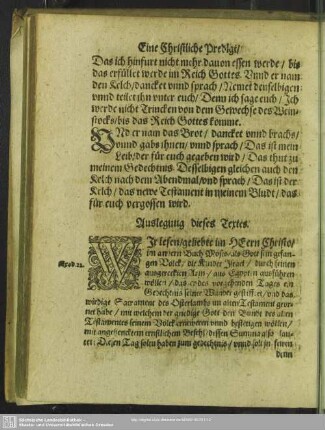 Eine Christliche Predigt/
Das ich hinfurt nicht mehr dauon essen werde / bis
das erfüllet werde im Reich Gottes. Vnnd er nam
den Kelch/ dancket vnnd sprach / Nemet denselbigen
vnnd teilet jhn vnter euch / Denn ich sage euch / Ich
werde nicht Trincken von dem Gewechse des Wein-
stocks/ bis das Reich Gottes komme.
VNd er nam das Brot / dancket vnnd brachs/
vnnd gabs jhnen/ vnnd sprach / Das ist mein
Leib/ der für euch gegeben wird / Das thut zu
meinem Gedechtnis. Desselbigen gleichen auch den
Kelch nach dem Abendmal/ vnd sprach / Das ist der
Kelch / das newe Testament in meinem Bludt / das
für euch vergossen wird.
Auslegung dieses Textes.
WIr lesen/ geliebte im HErrn Christo/
im andern Buch Mosis/ als Gott sein gefan-
Exod. 12.
gen Volck/ die Kinder Israel / durch seinen
ausgereckten Arm / aus Egypten ausführen
wöllen / das er den vorgehenden Tages ein
Gedechtnis seiner Wunder gestifftet / vnd das
wirdige Sacrament des Osterlambs im alten Testament georde-
net habe / mit welchem der gnedige Gott den Bundt des alten
Testamentes seinem Volck ernewern vnnd bestetigen wöllen /
mit angehencktem ernstlichem Befehl/ dessen Summa also lau-
tet: Diesen Tag solt jhr haben zum gedechtnis / vnnd solt jn feyren
denn